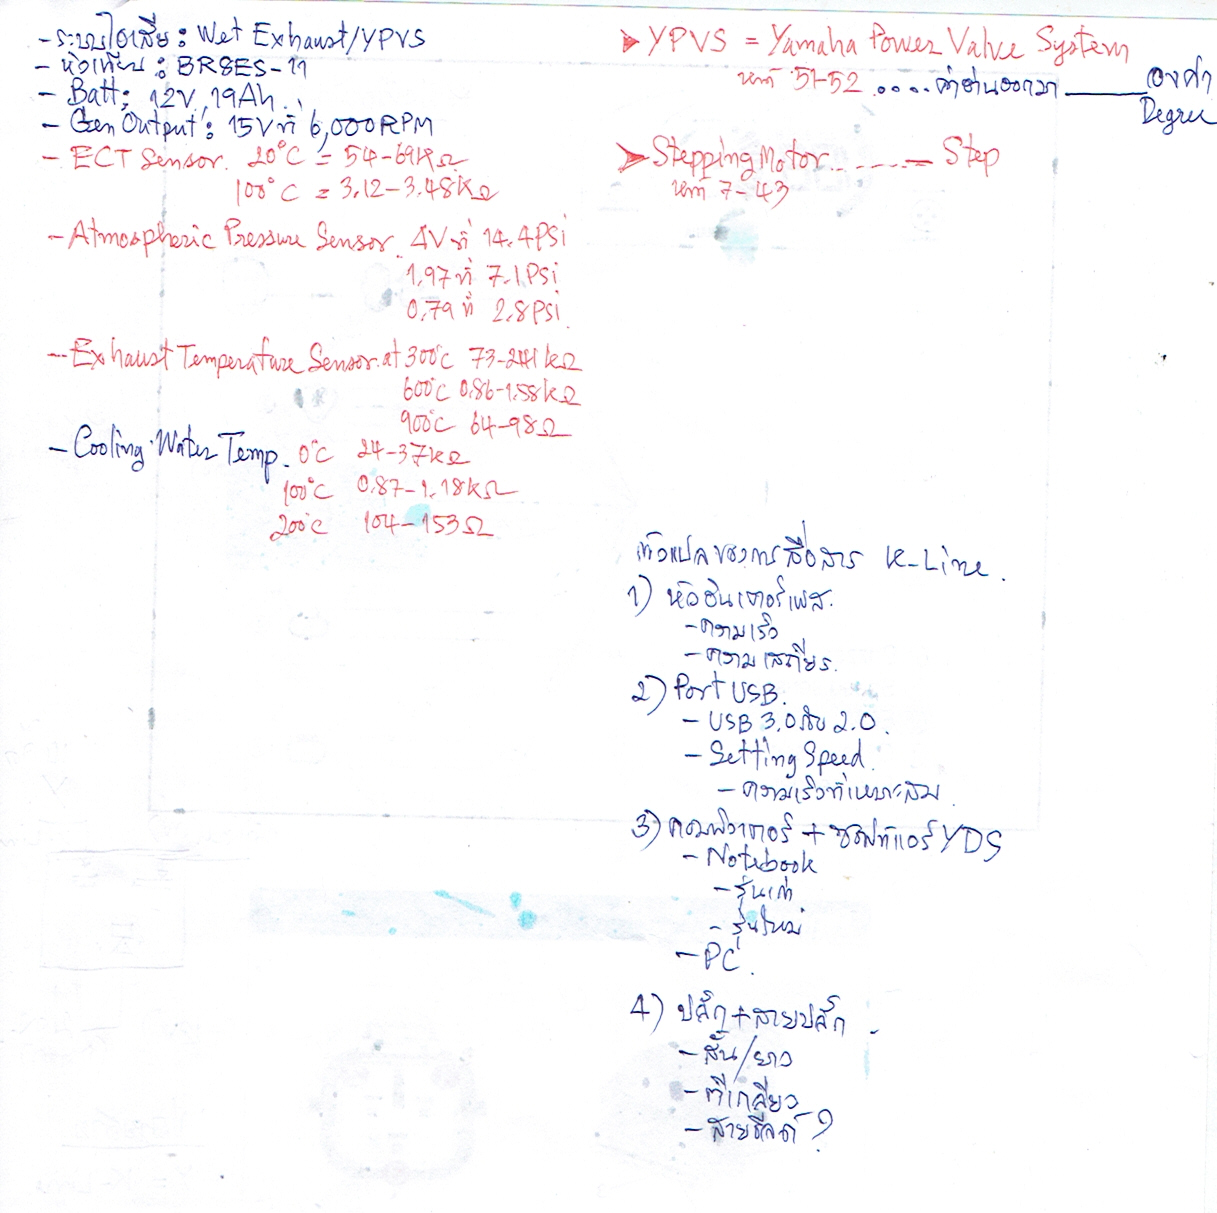 - ระบบไอเสีย : Wet Exhaust/YPVS
- หัวเทียน : BR8ES-11
- Batt: 12V, 19Ah.
- Gen Output : 15V ที่ 6,000RPM
- ECT Sensor. 20°C = 54-69kΩ
100°C = 3.12-3.48kΩ
- Atmospheric Pressure Sensor. 4V ที่ 14.4PSi
1.97 ที่ 7.1PSi
0.79 ที่ 2.8PSi
- Exhaust Temperature Sensor. at 300°C 73-241kΩ
600°C 0.86-1.58kΩ
900°C 64-98Ω
- Cooling Water Temp. 0°C 24-37kΩ
100°C 0.87-1.18kΩ
200°C 104-153Ω
➤ YPVS = Yamaha Power Valve System
หน้า 51-52 .... ค่าอ่านออกมา ______ องศา
Degree
➤ Stepping Motor ------ Step
หน้า 7-43
ตัวแปลของการสื่อสาร K-Line.
1) หัวอินเตอร์เฟส.
- ความเร็ว
- ความเสถียร.
2) Port USB.
- USB 3.0 กับ 2.0.
- Setting Speed.
- ความเร็วที่เหมาะสม.
3) คอมพิวเตอร์ + ซอฟท์แวร์ YDS
- Notebook
- รุ่นเก่า
- รุ่นใหม่
- PC.
4) ปลั๊ก + สายปลั๊ก.
- สั้น/ยาว
- ตีเกลียว
- สายชีลด์ ?